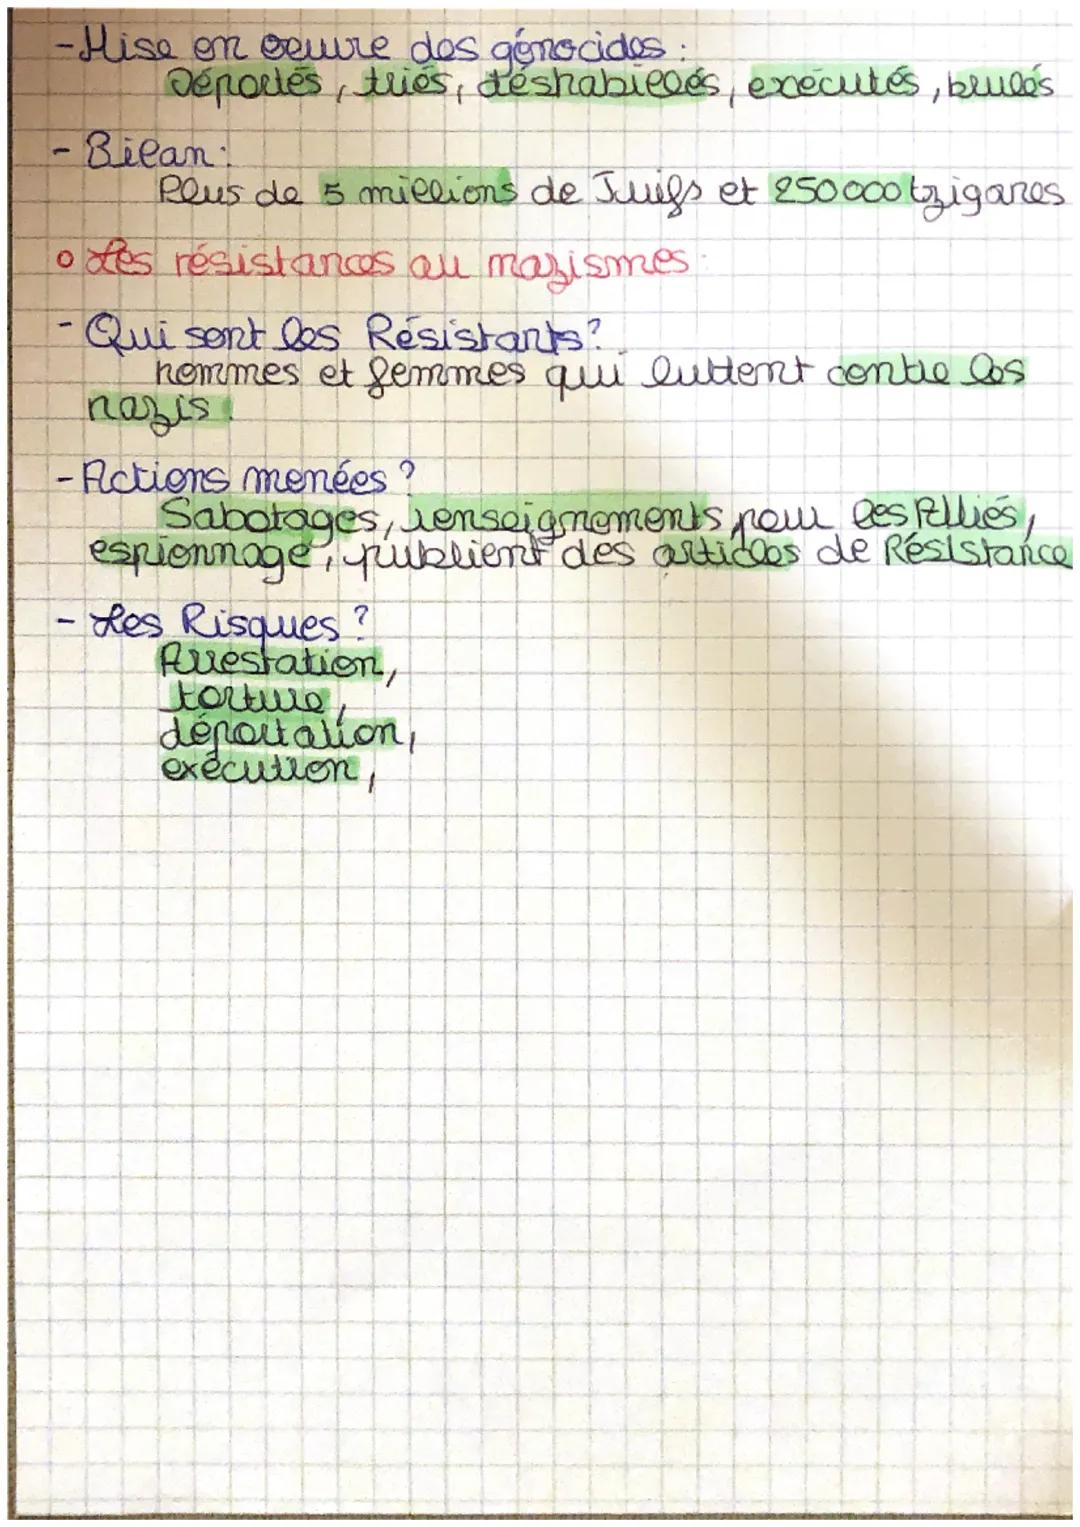 - Mise en oeuvre des génocides :
Déportés, triés, déshabillés, exécutés, brulés
- Bilan :
Plus de 5 millions de Juifs et 250000 tziganes
o Les résistances au nazismes :
- Qui sont les Résistants ?
hommes et femmes qui luttent contre les
nazis.
- Actions menées ?
Sabotages, renseignements pour les Alliés,
espionnage, publient des articles de Résistance
- Les Risques ?
Arrestation,
torture,
déportation,
exécution,